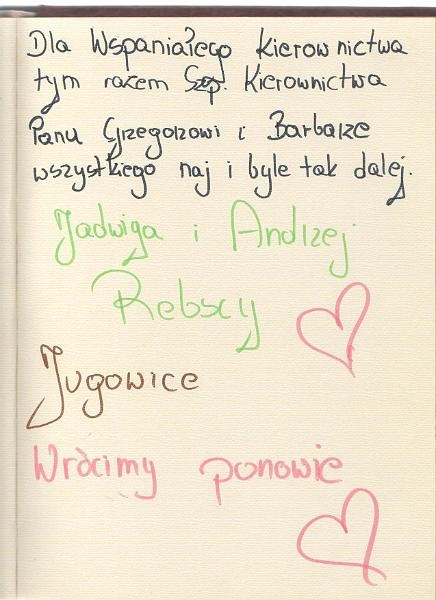 Dla Wspaniałego Kierownictwa
tym razem Szp. Kierownictwa
Panu Grzegorzowi i Barbarze
wszystkiego naj i byle tak dalej.
Jadwiga i Andrzej
Rebscy
Jugowice
Wrócimy ponowie